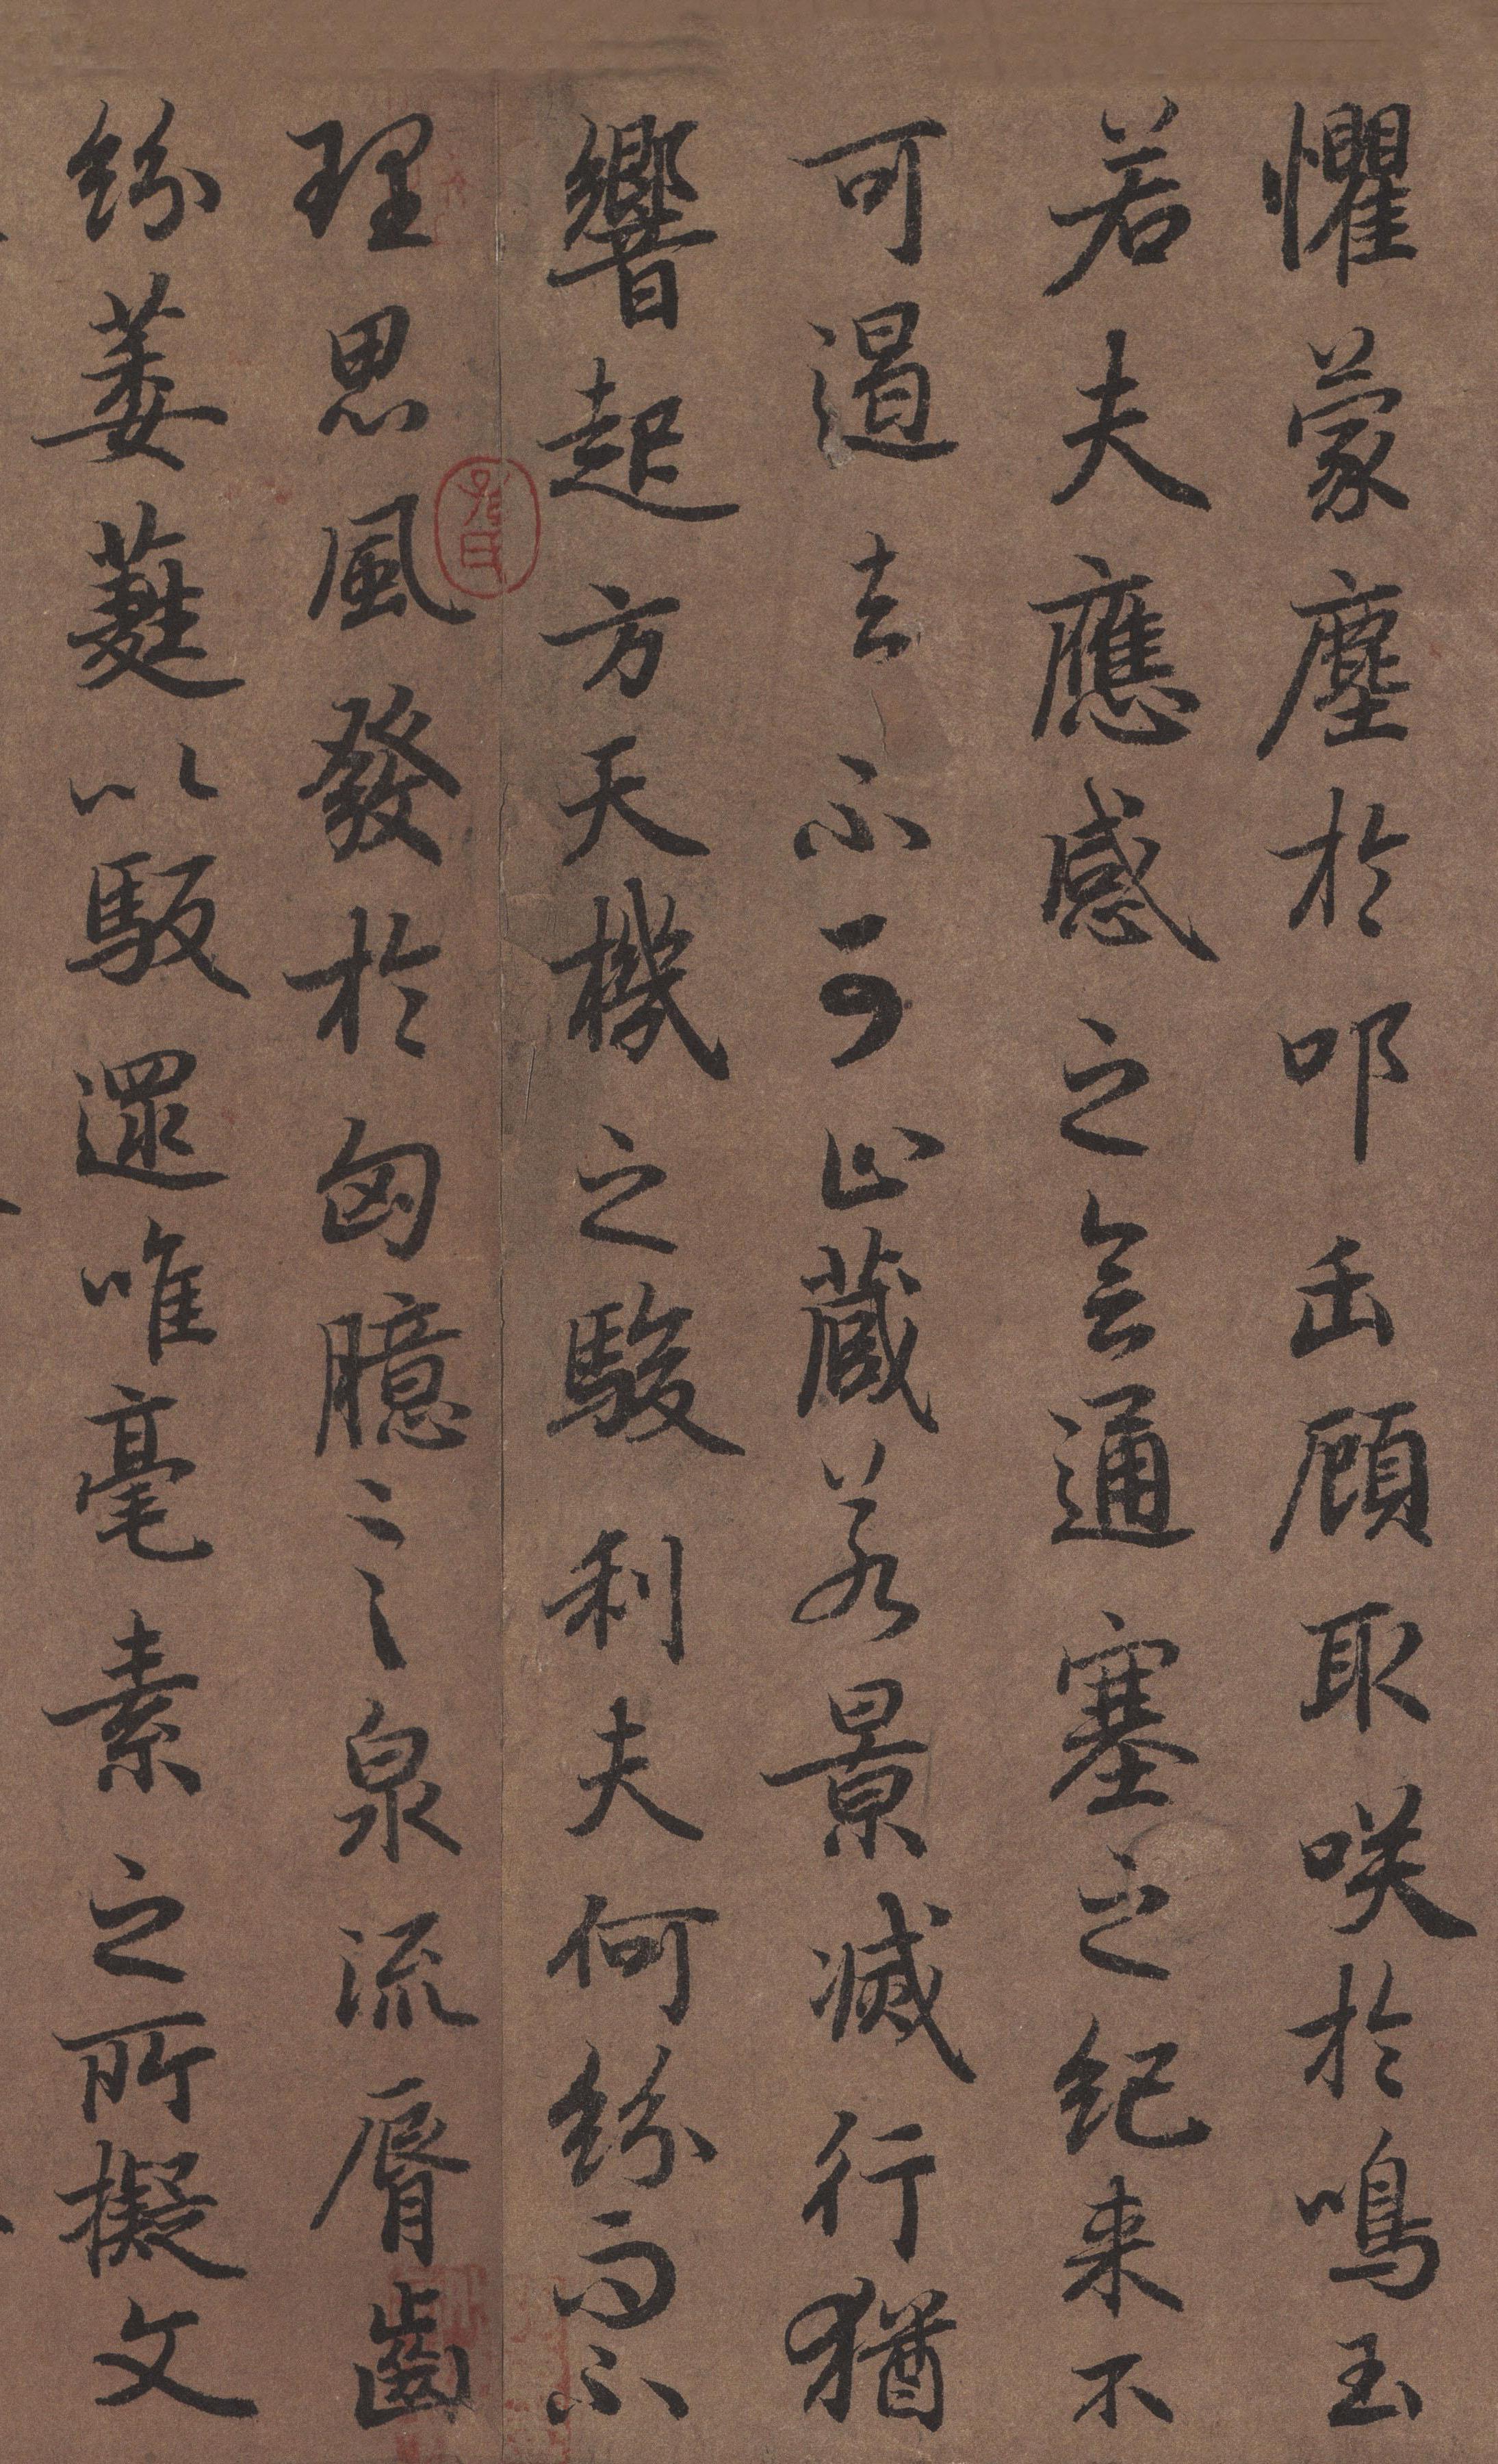 懼蒙塵於叩缶顧取咲於鳴玉
若夫應感之会通塞之紀来不
可遏去不可止蔵若景滅行猶
響起方天機之駿利夫何紛而不
理思風發於匈臆言泉流脣齒
紛萎蕤以馺遝唯毫素之所擬文